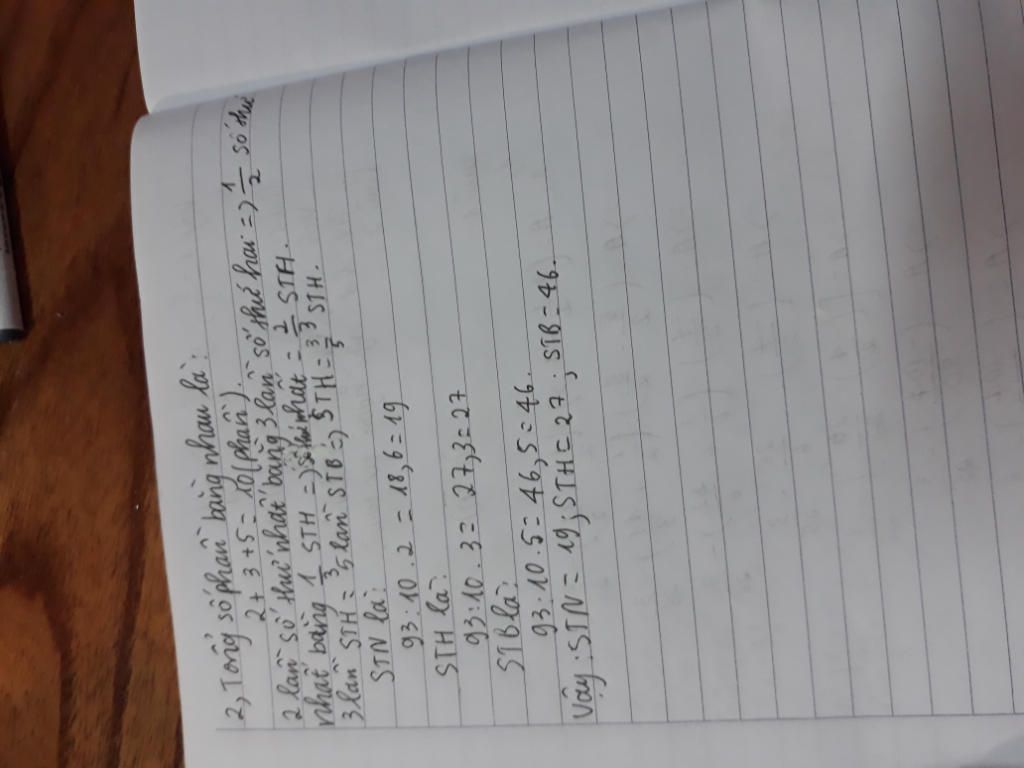 2, Tổng số phần bằng nhau là:
2 + 3 + 5 = 10 (phần).
2 lần số thứ nhất bằng 3 lần số thứ hai => 1/2 số thứ
nhất bằng 1/3 STH => nhất = 2/3 STH.
3 lần STH = 5 lần STB => STH = 3/5 STH.
STN là:
93 : 10 . 2 = 18,6 = 19
STH là:
93 : 10 . 3 = 27,3 = 27
STB là:
93 : 10 . 5 = 46,5 = 46.
Vậy : STN = 19 ; STH = 27 ; STB = 46.